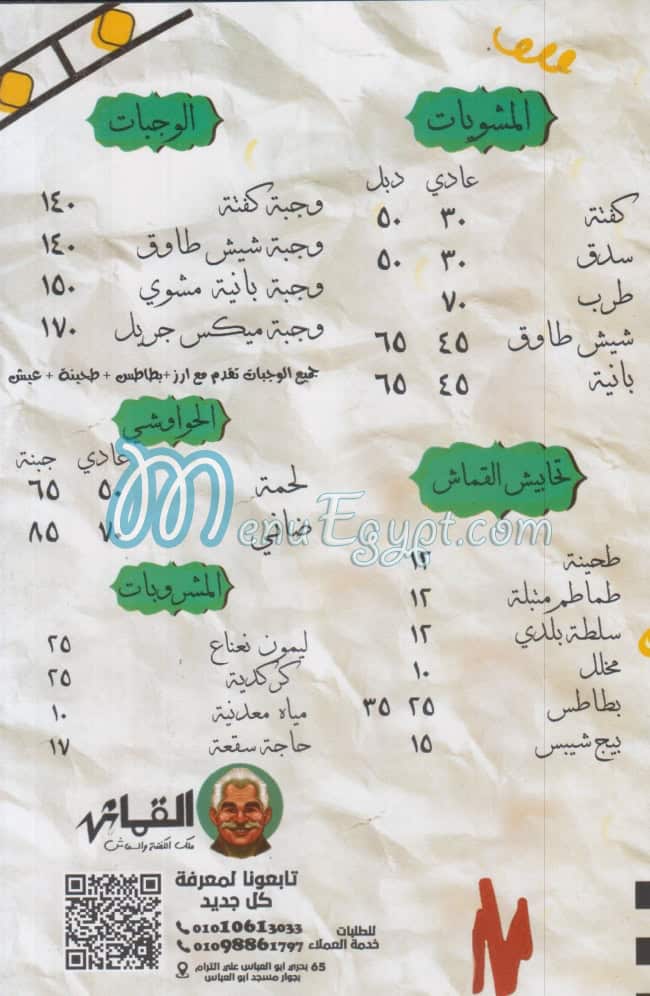 المشويات
عادي دبل
كفتة ٣٠ ٥٠
سدق ٣٠ ٥٠
طرب ٧٠
شيش طاووق ٤٥ ٦٥
بانية ٤٥ ٦٥
تحابيش القماش
طحينة ١٢
طماطم متبلة ١٢
سلطة بلدي ١٢
مخلل ١٠
بطاطس ٢٥ ٣٥
بيج شيبس ١٥
الوجبات
وجبة كفتة ١٤٠
وجبة شيش طاوق ١٤٠
وجبة بانية مشوي ١٥٠
وجبة ميكس جريل ١٧٠
جميع الوجبات تقدم مع ارز+بطاطس + طحينة + عيش
الحواوشي
عادي جبنة
لحمة ٥٠ ٦٥
ضاني ٧٠ ٨٥
MenuEgypt.com
المشروبات
ليمون نعناع ٢٥
كركدية ٢٥
مياه معدنية ١٠
حاجة سقعة ١٧
القماش
ملك الكفتة
تابعونا لمعرفة
كل جديد
للطلبات
01010613033
خدمة العملاء
01098861797
65 بحري ابو العباس علي الترام
بجوار مسجد ابو العباس